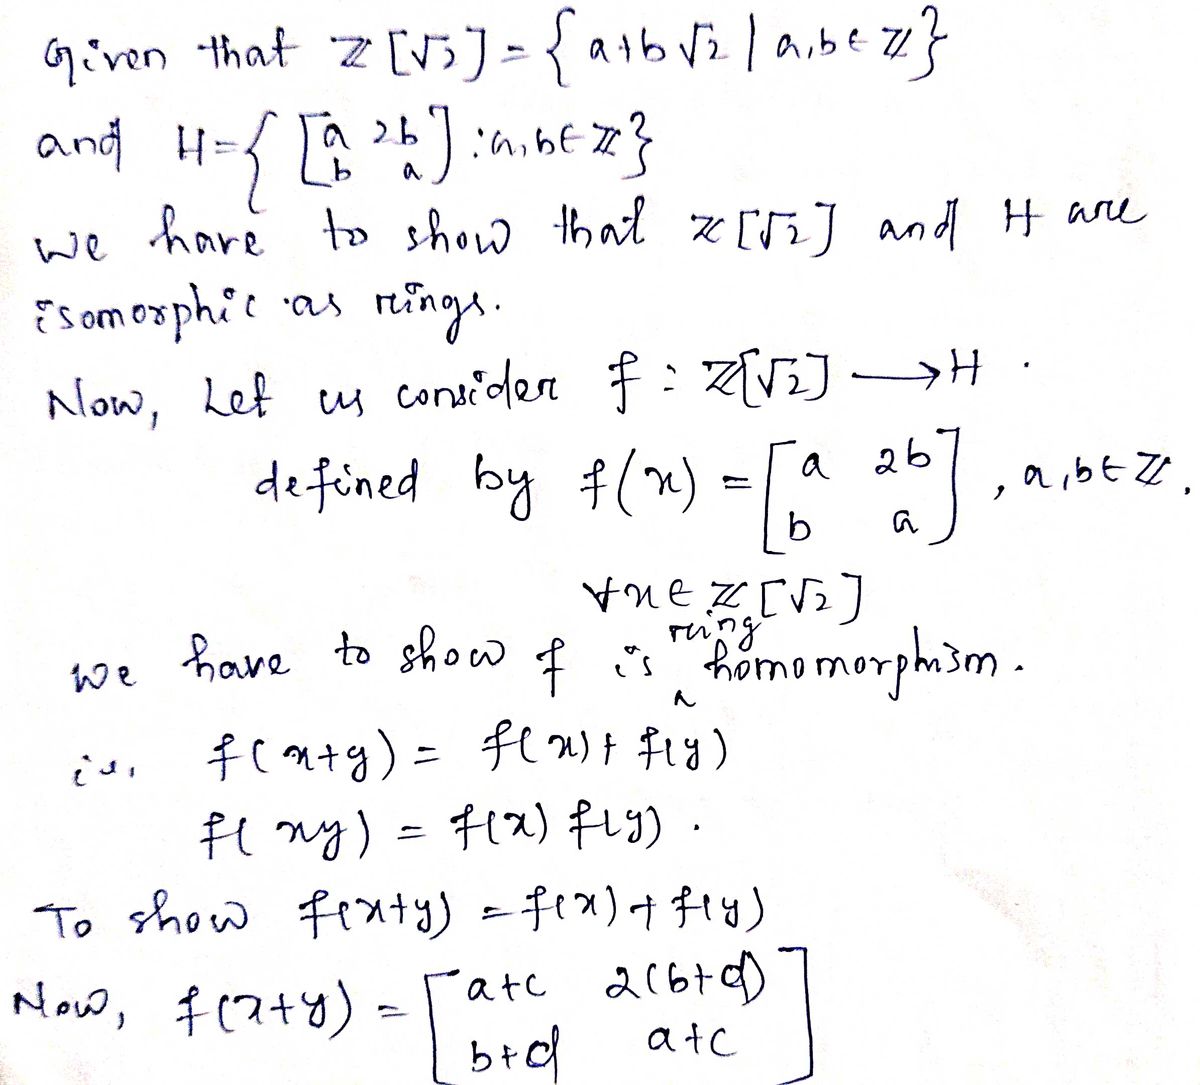 Given that ℤ[√2] = {a+b√2 | a,b ∈ ℤ}
and H = { [a 2b; b a] : a,b ∈ ℤ}
we have to show that ℤ[√2] and H are
isomorphic as rings.
Now, Let us consider f : ℤ[√2] ⟶ H .
defined by f(x) = [a 2b; b a] , a,b ∈ ℤ,
∀x ∈ ℤ[√2]
we have to show f is ring homomorphism.
i.e., f(x+y) = f(x) + f(y)
f(xy) = f(x) f(y) .
To show f(x+y) = f(x) + f(y)
Now, f(x+y) = [a+c 2(b+d); b+d a+c]